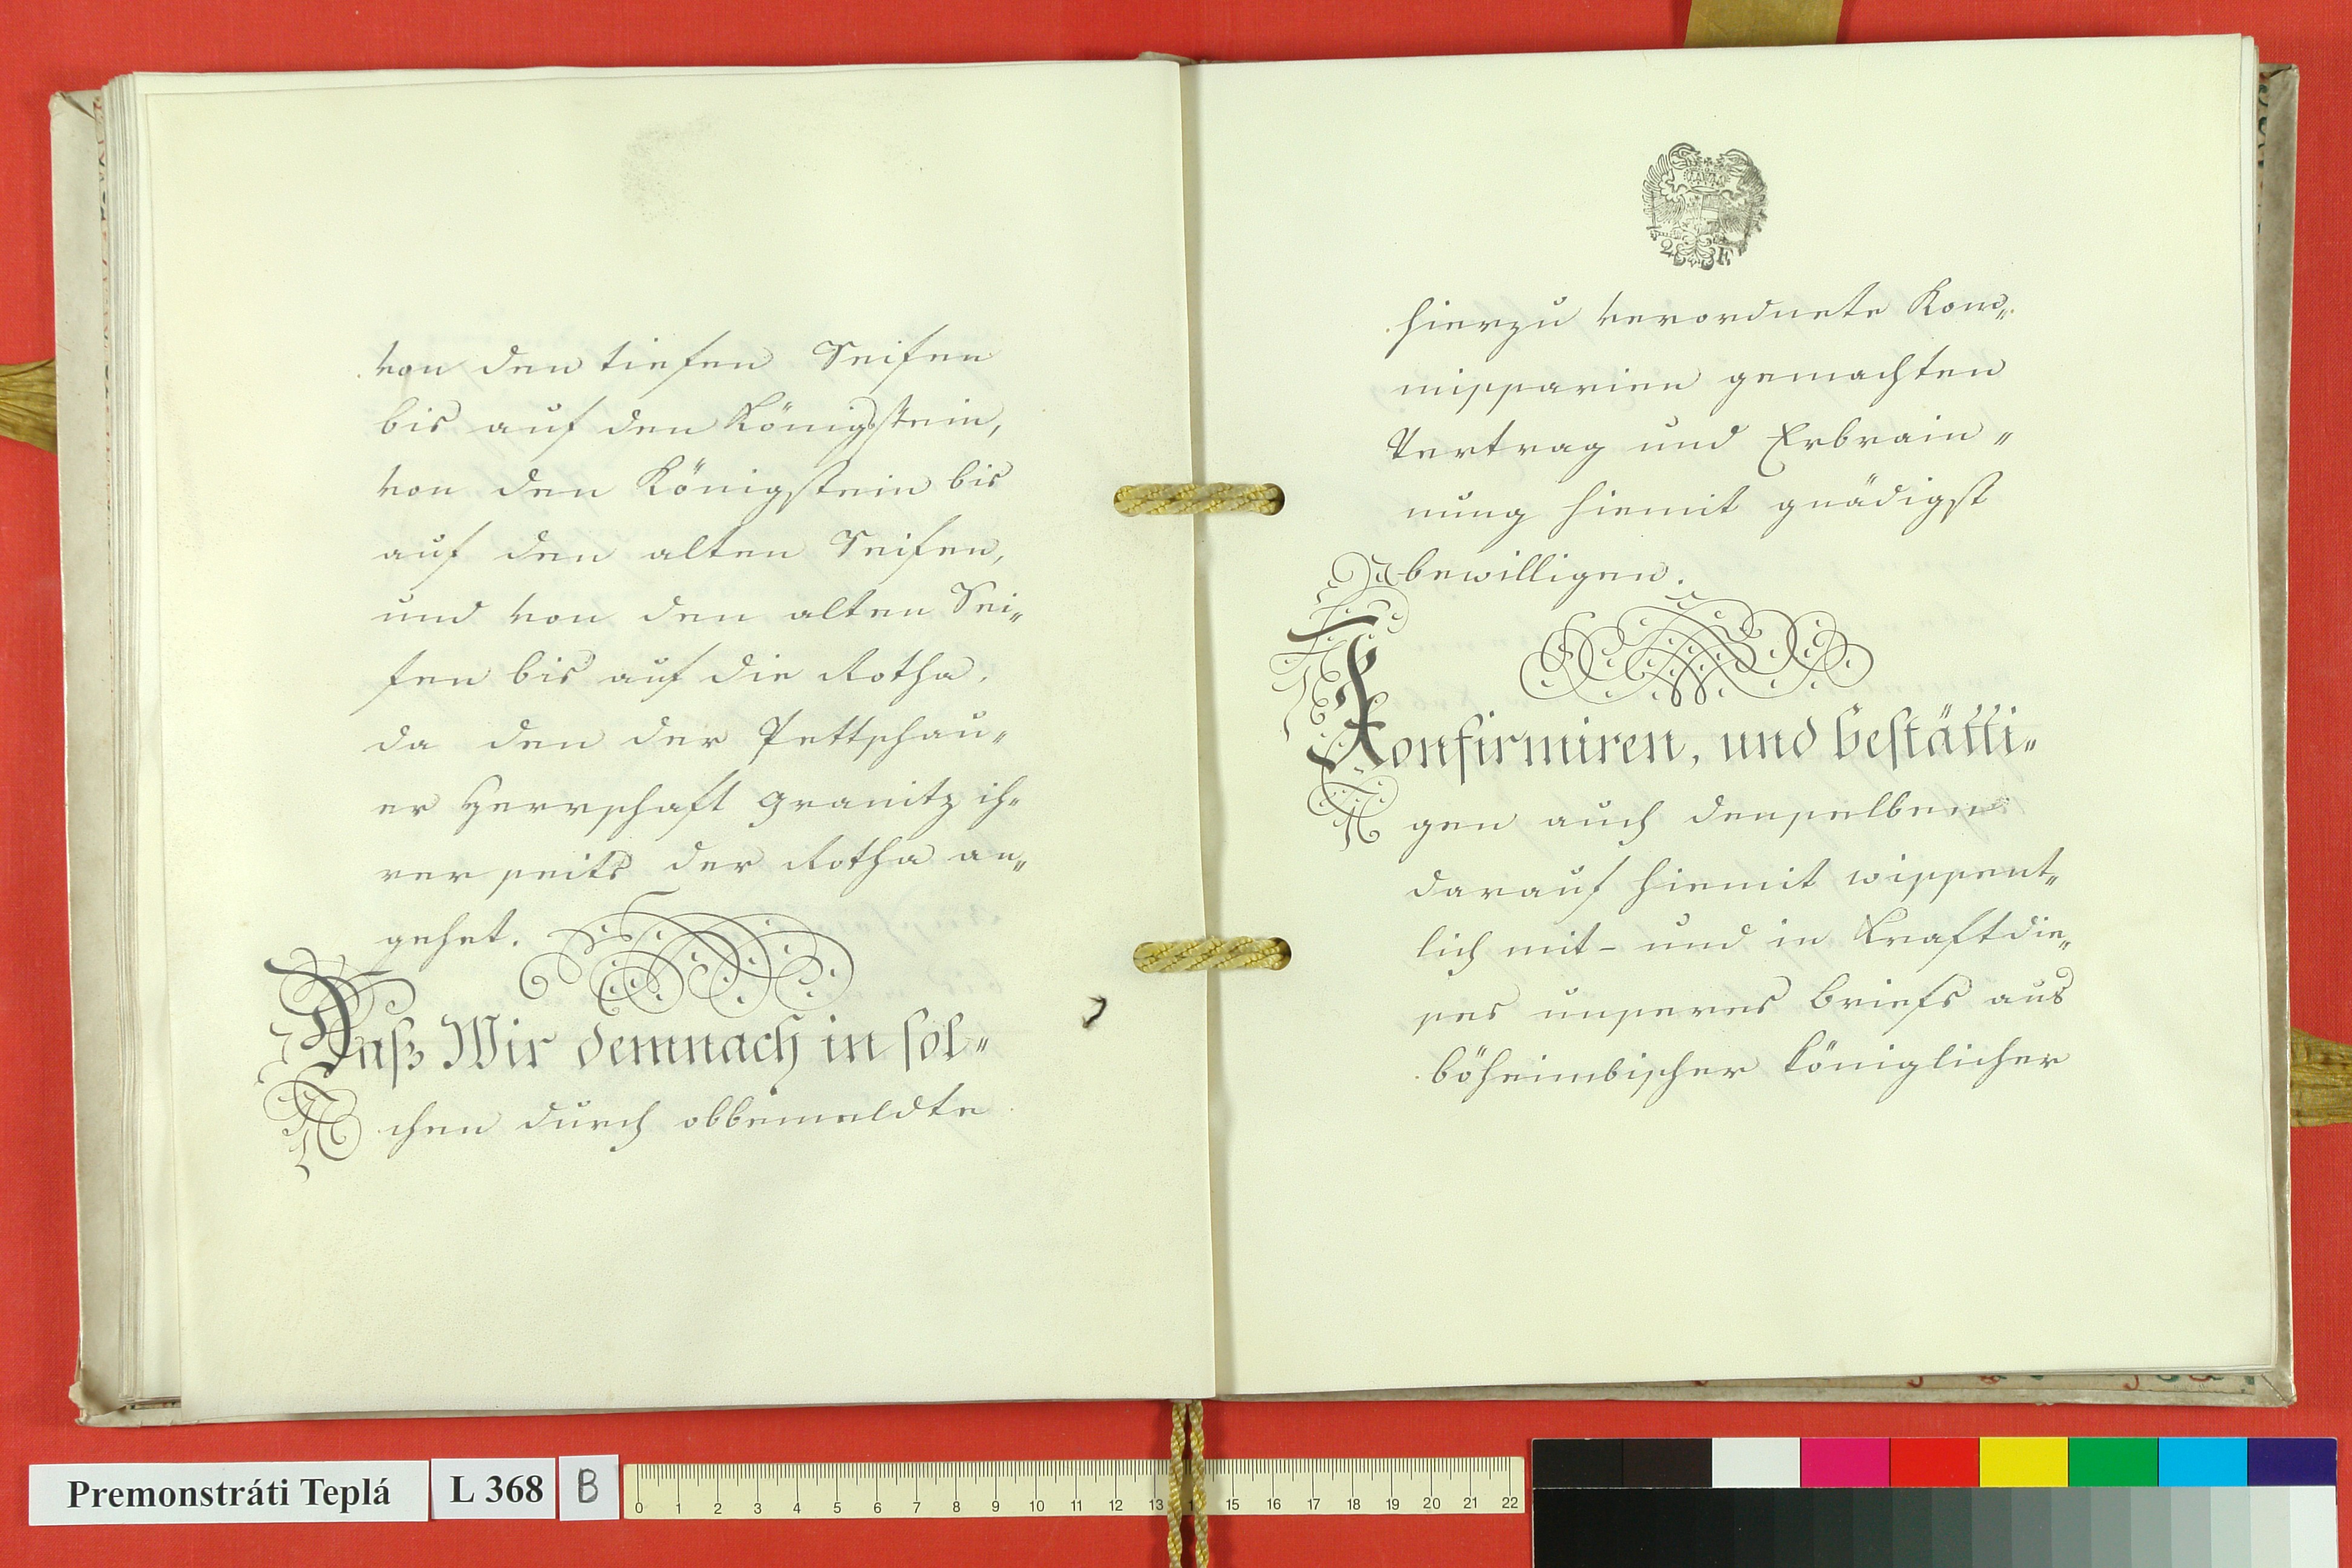 von den tiefen Seifen
bis auf den Königsstein,
von den Königstein bis
auf den alten Seifen,
und von den alten Sei„
fen bis auf die Rotha,
da den der Pettschau„
er Herrschaft Granitz ih„
rerseits der Rotha an„
gehet.
Daß Wir demnach in sol„
chen durch obbemeldte
2 F
hierzu verordnete Kom„
missarien gemachten
Vertrag und Erbrain„
nung hiemit gnädigst
bewilligen.
Konfirmiren, und bestätti„
gen auch denselben
darauf hiemit wissent„
lich mit- und in Kraft die„
ses unseres Briefs aus
böheimbischer königlicher
Premonstráti Teplá L 368 B
0 1 2 3 4 5 6 7 8 9 10 11 12 13 15 16 17 18 19 20 21 22